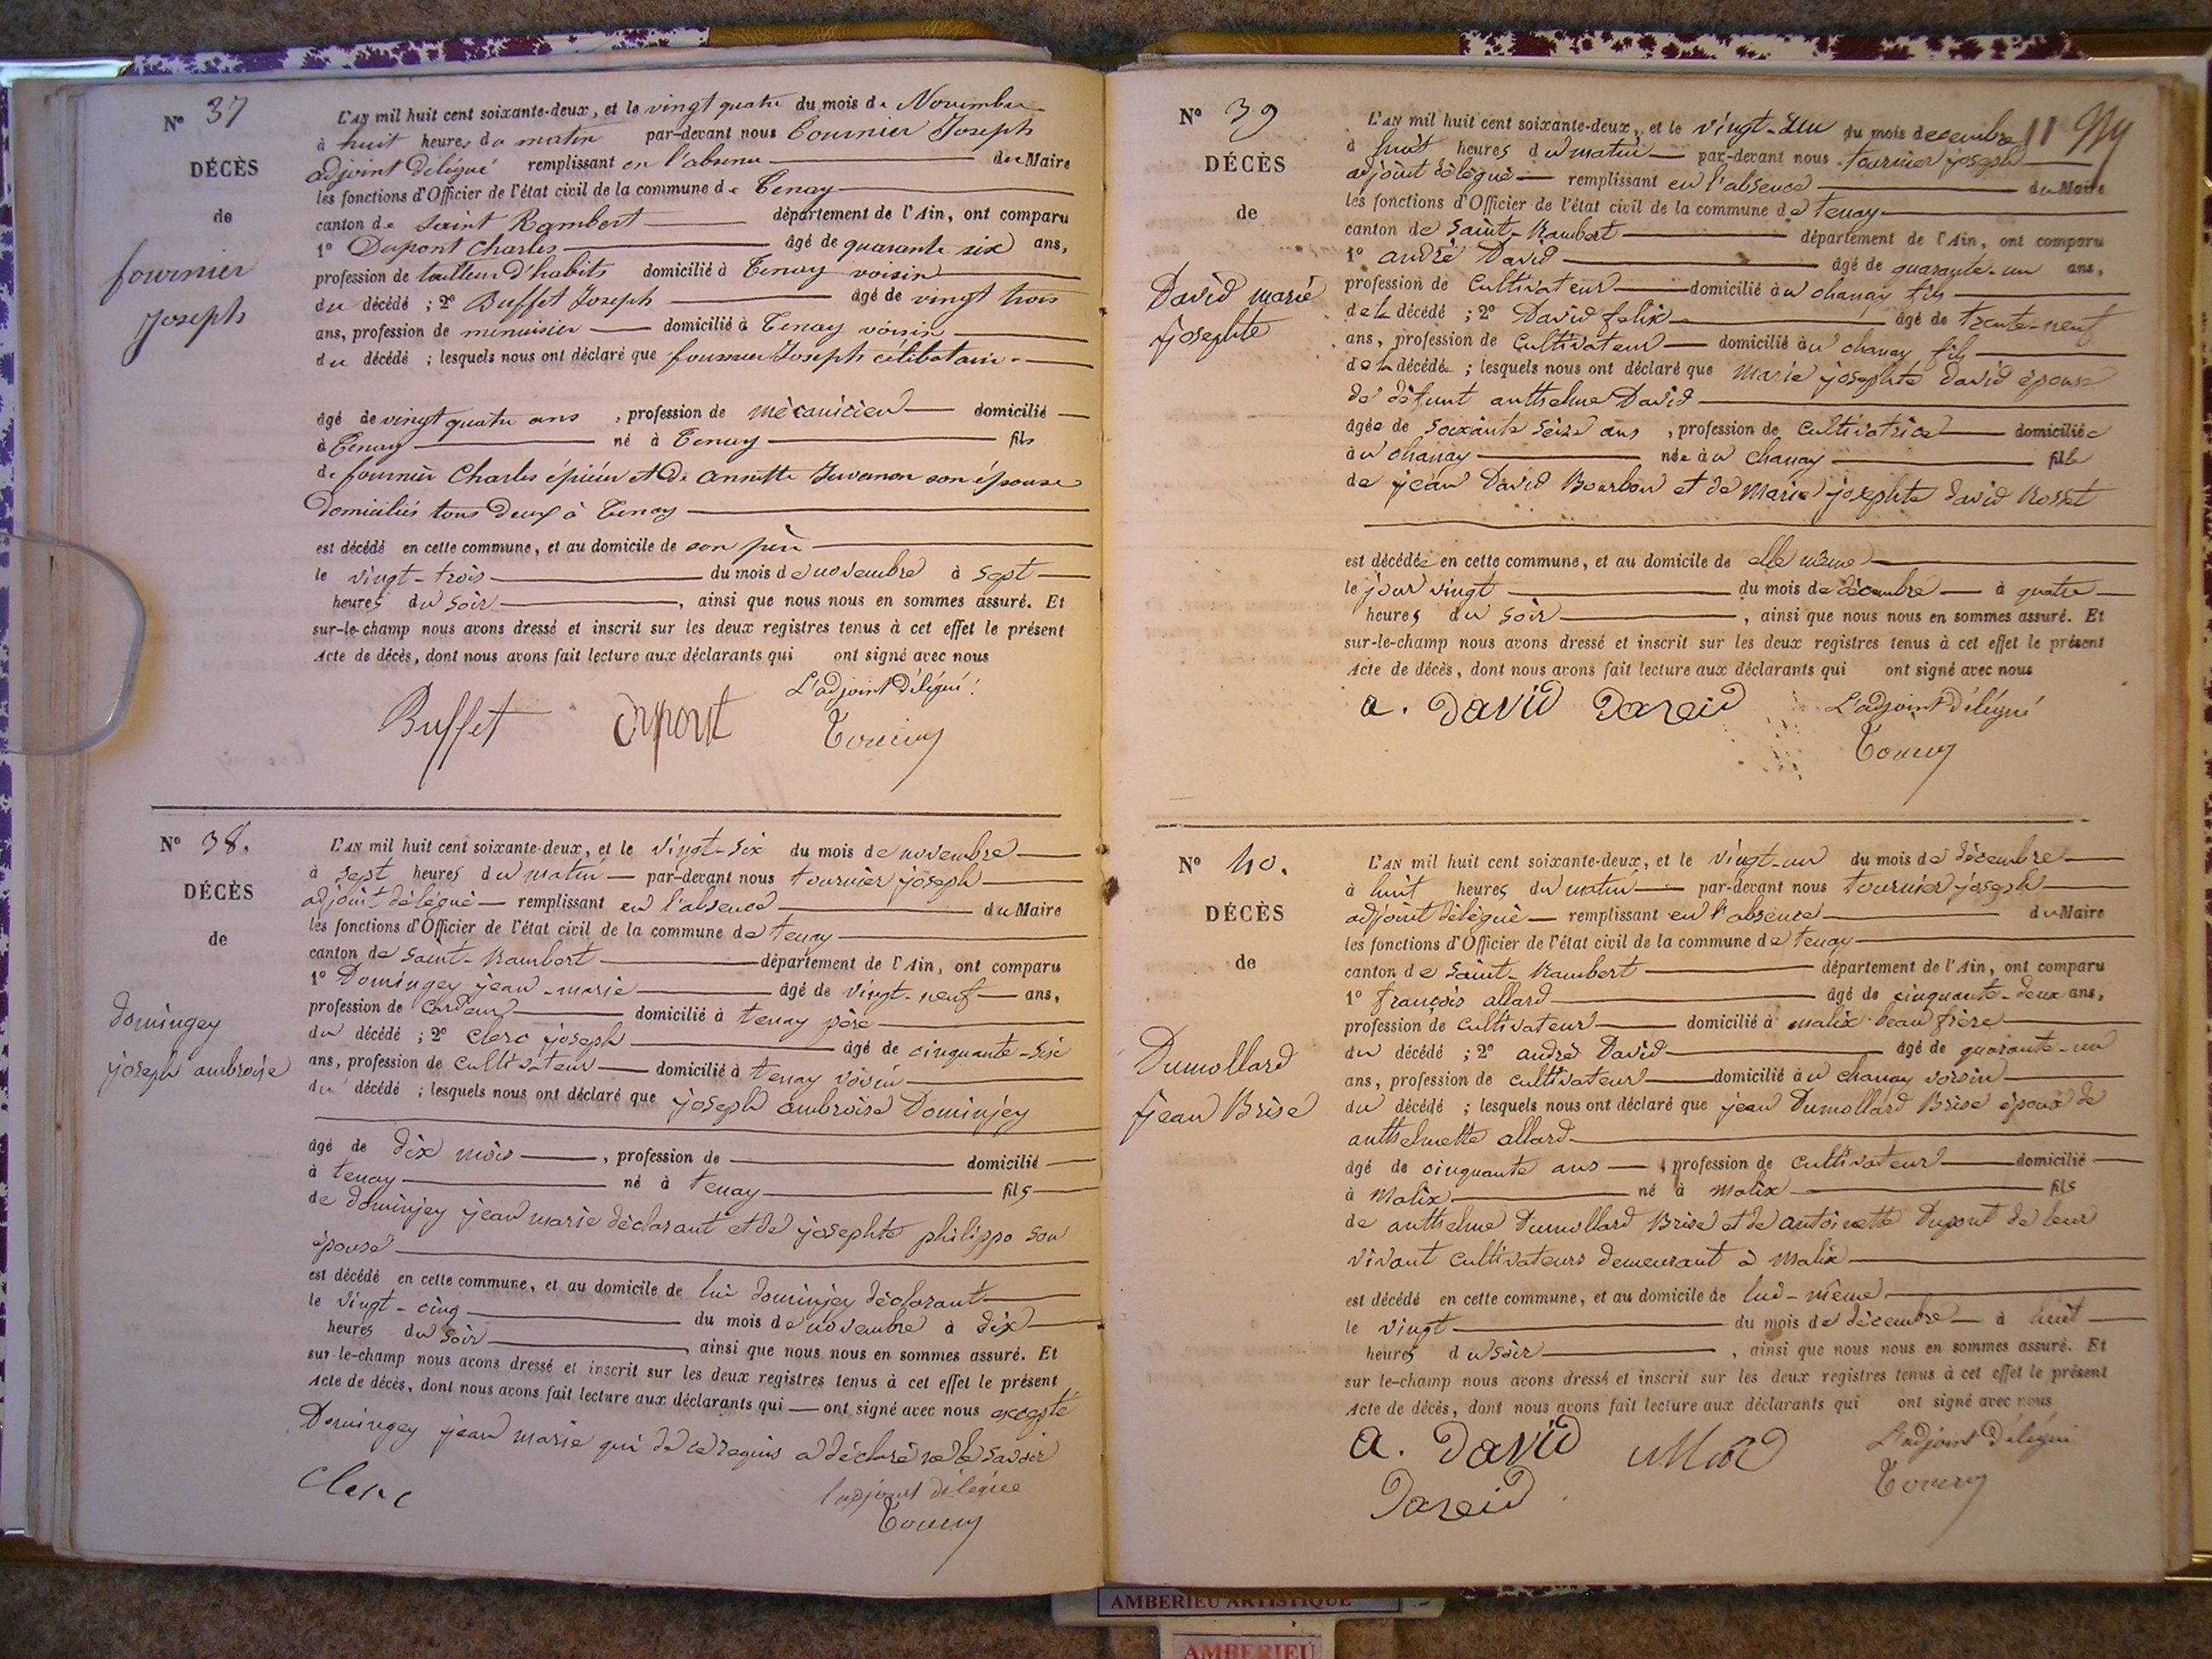 Nº 37
DÉCÈS
de
fournier
Joseph
L'AN mil huit cent soixante-deux, et le vingt quatre du mois de Novembre
à huit heures du matin par-devant nous Tournier Joseph
adjoint délégué remplissant en l'absence du Maire
les fonctions d'Officier de l'état civil de la commune de Tenay
canton de saint Rambert département de l'Ain, ont comparu
1º Dupont Charles âgé de quarante six ans,
profession de tailleur d'habits domicilié à Tenay voisin
du décédé ; 2º Buffet Joseph âgé de vingt trois
ans, profession de menuisier domicilié à Tenay voisin
du décédé ; lesquels nous ont déclaré que fournier Joseph célibataire
âgé de vingt quatre ans , profession de mécanicien domicilié
à Tenay né à Tenay fils
de fournier Charles épicier et de annette Juvanon son épouse
domiciliés tous deux à Tenay
est décédé en cette commune, et au domicile de son père
le vingt-trois du mois de novembre à sept
heures du soir , ainsi que nous nous en sommes assuré. Et
sur-le-champ nous avons dressé et inscrit sur les deux registres tenus à cet effet le présent
Acte de décès, dont nous avons fait lecture aux déclarants qui ont signé avec nous
L'adjoint délégué
Buffet Dupont
Nº 38.
DÉCÈS
de
domingey
joseph ambroise
L'AN mil huit cent soixante-deux, et le vingt-six du mois de novembre
à sept heures du matin par-devant nous tournier joseph
adjoint délégué remplissant en l'absence du Maire
les fonctions d'Officier de l'état civil de la commune de tenay
canton de saint-Rambert département de l'Ain, ont comparu
1º Domingey jean-marie âgé de vingt-neuf ans,
profession de cardeur domicilié à tenay père
du décédé ; 2º clerc joseph âgé de cinquante-six
ans, profession de cultivateur domicilié à tenay voisin
du décédé ; lesquels nous ont déclaré que joseph ambroise Dominjey
âgé de dix mois , profession de domicilié
à tenay né à tenay fils
de dominjey jean marie déclarant et de josephte philippe son
épouse
est décédé en cette commune, et au domicile de lui dominjey déclarant
le vingt-cinq du mois de novembre à dix
heures du soir , ainsi que nous nous en sommes assuré. Et
sur-le-champ nous avons dressé et inscrit sur les deux registres tenus à cet effet le présent
Acte de décès, dont nous avons fait lecture aux déclarants qui ont signé avec nous excepté
Domingey jean marie qui de ce requis a déclaré ne le savoir
Clerc l'adjoint délégué
Nº 39
DÉCÈS
de
David marie
josephte
L'AN mil huit cent soixante-deux, et le vingt-un du mois decembre
à huit heures du matin par-devant nous tournier joseph
adjoint délégué remplissant en l'absence du Maire
les fonctions d'Officier de l'état civil de la commune de tenay
canton de saint-Rambert département de l'Ain, ont comparu
1º andré David âgé de quarante-un ans,
profession de cultivateur domicilié à chanay fils
de la décédé ; 2º David felix âgé de trente-neuf
ans, profession de cultivateur domicilié à chanay fils
de la décédée ; lesquels nous ont déclaré que marie josephte david épouse
de défunt anthelme David
âgée de soixante seize ans , profession de cultivatrice domiciliée
à chanay née à chanay fille
de jean David Bourbon et de marie josephte david Rosset
est décédée en cette commune, et au domicile de elle même
le jour vingt du mois de décembre à quatre
heures du soir , ainsi que nous nous en sommes assuré. Et
sur-le-champ nous avons dressé et inscrit sur les deux registres tenus à cet effet le présent
Acte de décès, dont nous avons fait lecture aux déclarants qui ont signé avec nous
a. David David L'adjoint délégué
Nº 40.
DÉCÈS
de
Dumollard
jean Brise
L'AN mil huit cent soixante-deux, et le vingt-un du mois de décembre
à huit heures du matin par-devant nous tournier joseph
adjoint délégué remplissant en l'absence du Maire
les fonctions d'Officier de l'état civil de la commune de tenay
canton de saint-Rambert département de l'Ain, ont comparu
1º françois allard âgé de cinquante-deux ans,
profession de cultivateur domicilié à malix beau frère
du décédé ; 2º andré David âgé de quarante-un
ans, profession de cultivateur domicilié à chanay voisin
du décédé ; lesquels nous ont déclaré que jean Dumollard Brise époux de
anthelmette allard
âgé de cinquante ans , profession de cultivateur domicilié
à Malix né à malix fils
de anthelme Dumollard Brise et de antoinette Dupont de leur
vivant cultivateurs demeurant à malix
est décédé en cette commune, et au domicile de lui-même
le vingt du mois de décembre à huit
heures du soir , ainsi que nous nous en sommes assuré. Et
sur le-champ nous avons dressé et inscrit sur les deux registres tenus à cet effet le présent
Acte de décès, dont nous avons fait lecture aux déclarants qui ont signé avec nous
a. David L'adjoint délégué
David
AMBERIEU ARTISTIQUE
AMBERIEU